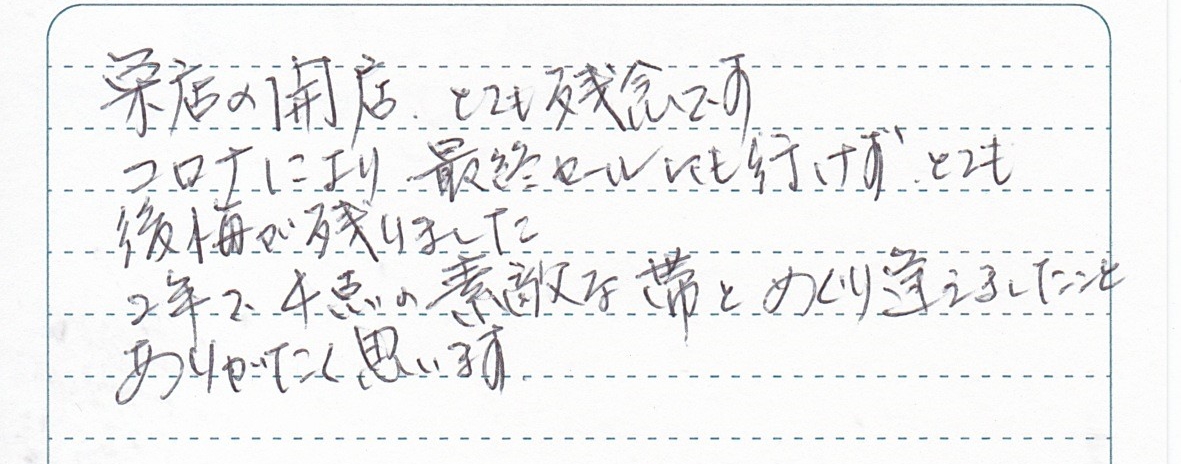 栄店の閉店、とても残念です
コロナにより、最終セールにも行けず、とても
後悔が残りました
2年で、4点の素敵な帯とめぐり逢えましたこと
ありがたく思います。